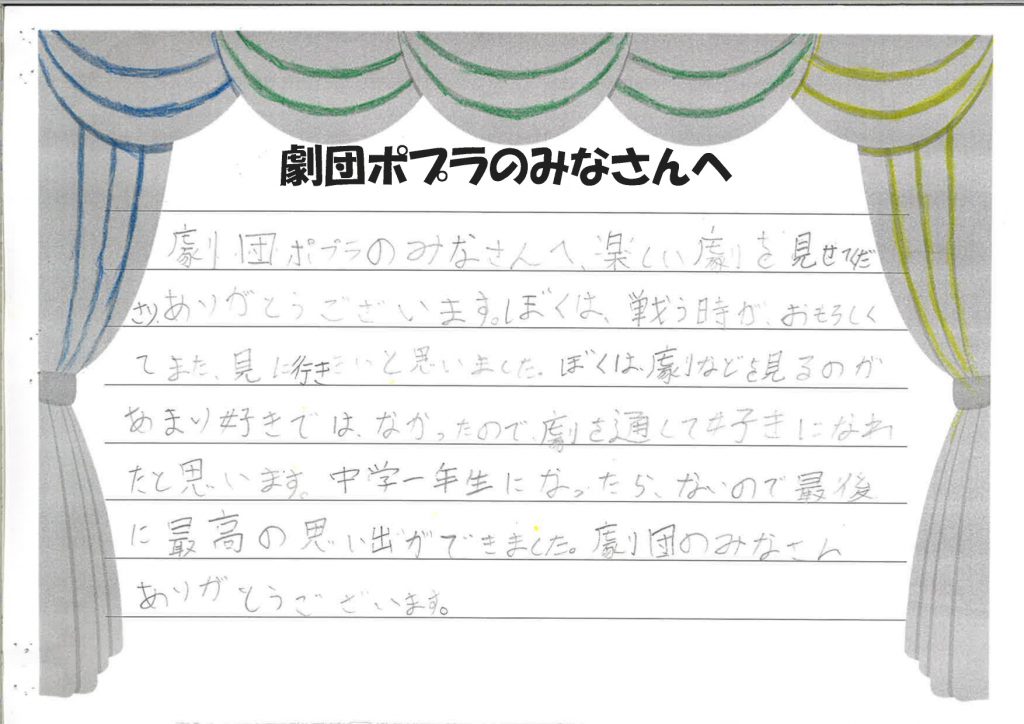 劇団ポプラのみなさんへ
劇団ポプラのみなさんへ、楽しい劇を見せてくだ
さりありがとうございます。ぼくは、戦う時が、おもろしく
てまた、見に行きたいと思いました。ぼくは、劇などを見るのが
あまり好きでは、なかったので、劇を通して好きになれ
たと思います。中学一年生になったら、ないので最後
に最高の思い出ができました。劇団のみなさん
ありがとうございます。